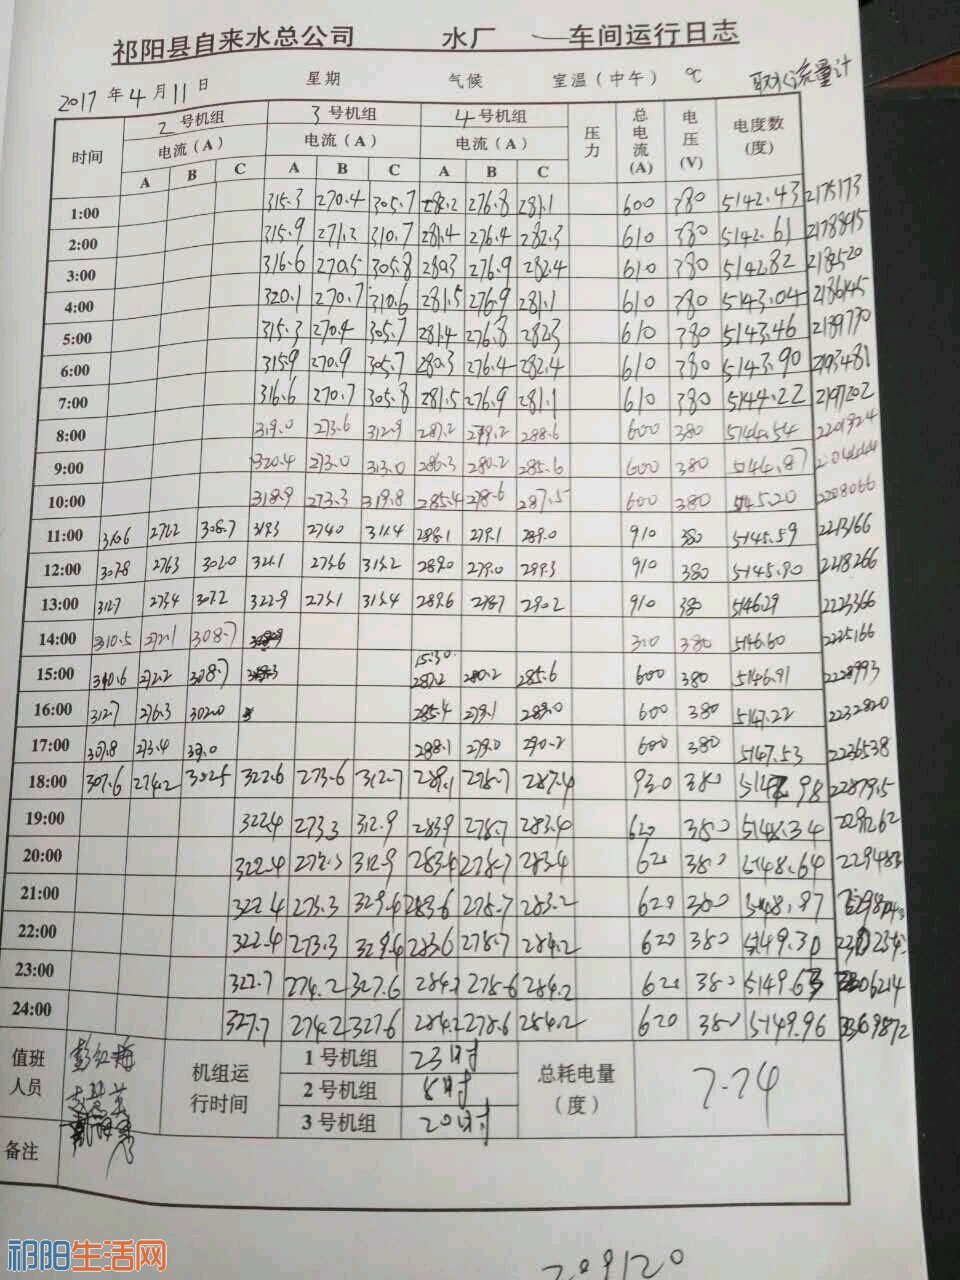 祁阳县自来水总公司 水厂 车间运行日志
2017年4月11日 星期 气候 室温(中午) ℃ 取水流量计
时间 2号机组 3号机组 4号机组 压力 总电流(A) 电压(V) 电度数(度)
电流(A) 电流(A) 电流(A)
A B C A B C A B C
1:00 315.3 270.4 305.7 282.2 276.8 281.1 600 380 5142.43 2175173
2:00 315.9 271.2 310.7 281.4 276.4 282.3 610 380 5142.61 2178895
3:00 316.6 270.5 305.8 280.3 276.9 282.4 610 380 5142.82 2182520
4:00 320.1 270.7 310.6 281.5 276.9 281.1 610 380 5143.04 2186145
5:00 315.3 270.4 305.7 281.4 276.8 282.3 610 380 5143.46 2189770
6:00 315.9 270.9 305.7 280.3 276.4 282.4 610 380 5143.90 2193481
7:00 316.6 270.7 305.8 281.5 276.9 281.1 610 380 5144.22 2197202
8:00 319.0 273.6 312.9 287.2 279.2 288.6 600 380 5144.54 2201924
9:00 320.4 273.0 313.0 286.3 280.2 285.6 600 380 5144.87
10:00 318.9 273.3 319.8 285.4 278.6 287.5 600 380 5145.20 2208066
11:00 310.6 272.2 308.7 319.3 274.0 311.4 288.1 279.1 289.0 910 380 5145.59 2213166
12:00 307.8 276.3 302.0 321.1 273.6 313.2 289.0 279.0 289.3 910 380 5145.90 2218266
13:00 312.7 273.4 307.2 322.9 273.1 313.4 289.6 278.7 290.2 910 380 5146.29 2223366
14:00 310.5 272.1 308.7 310 380 5146.60 2225166
15:30
15:00 310.6 272.2 308.7 287.2 280.2 285.6 600 380 5146.91 2228993
16:00 312.7 276.3 302.0 285.4 279.1 289.0 600 380 5147.22 2232820
17:00 307.8 273.4 288.1 279.0 290.2 600 380 5147.53 2236538
18:00 307.6 274.2 302.5 322.6 273.6 312.7 289.1 278.7 287.4 930 380 5147.98 228795
19:00 322.4 273.3 312.9 283.9 278.7 283.4 620 380 5148.34 2291262
20:00 322.4 273.3 312.9 283.4 278.7 283.4 620 380 5148.64 2294483
21:00 322.4 273.3 329.6 283.6 278.7 283.2 620 380 5148.97
22:00 322.4 273.3 329.6 283.6 278.7 284.2 620 380 5149.30
23:00 322.7 274.2 327.6 284.2 278.6 284.2 620 380 5149.63 2306214
24:00 327.7 274.2 327.6 284.2 278.6 284.2 620 380 5149.96 2309872
值班人员 彭红梅
机组运行时间 1号机组 23时
2号机组 8时
3号机组 20时
总耗电量(度) 7.74
备注
祁阳生活网
209120